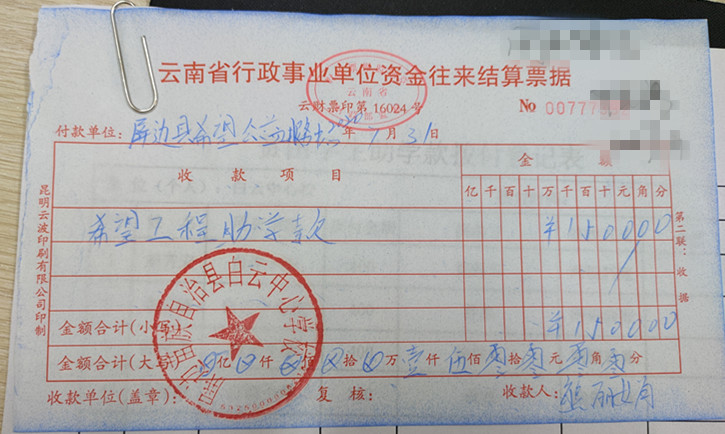 云南省行政事业单位资金往来结算票据
云南省
云财票印第 16024 号
No 00777
付款单位: 屏边县希望 年 7 月 31 日
收款项目 金额
亿千百十万千百十元角分
希望工程助学款 ¥150000
金额合计(小写) ¥150000
金额合计(大写) ⊗亿⊗仟⊗佰⊗拾⊗万壹仟伍佰零拾零元零角零分
收款单位(盖章): 复核: 收款人:
屏边苗族自治县白云中心学校
昆明云波印刷有限公司印制
第二联:收据